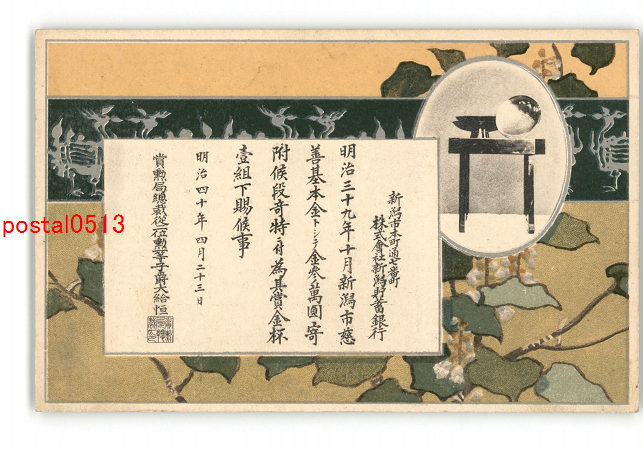 新潟市本町通七番町
株式會社新潟貯蓄銀行
明治三十九年十月新潟市慈
善基本金トシテ金參萬圓寄
附候段奇特ニ付為其賞金杯
壹組下賜候事
明治四十年四月二十三日
賞勲局總裁從二位勲一等子爵大給恒
postal0513